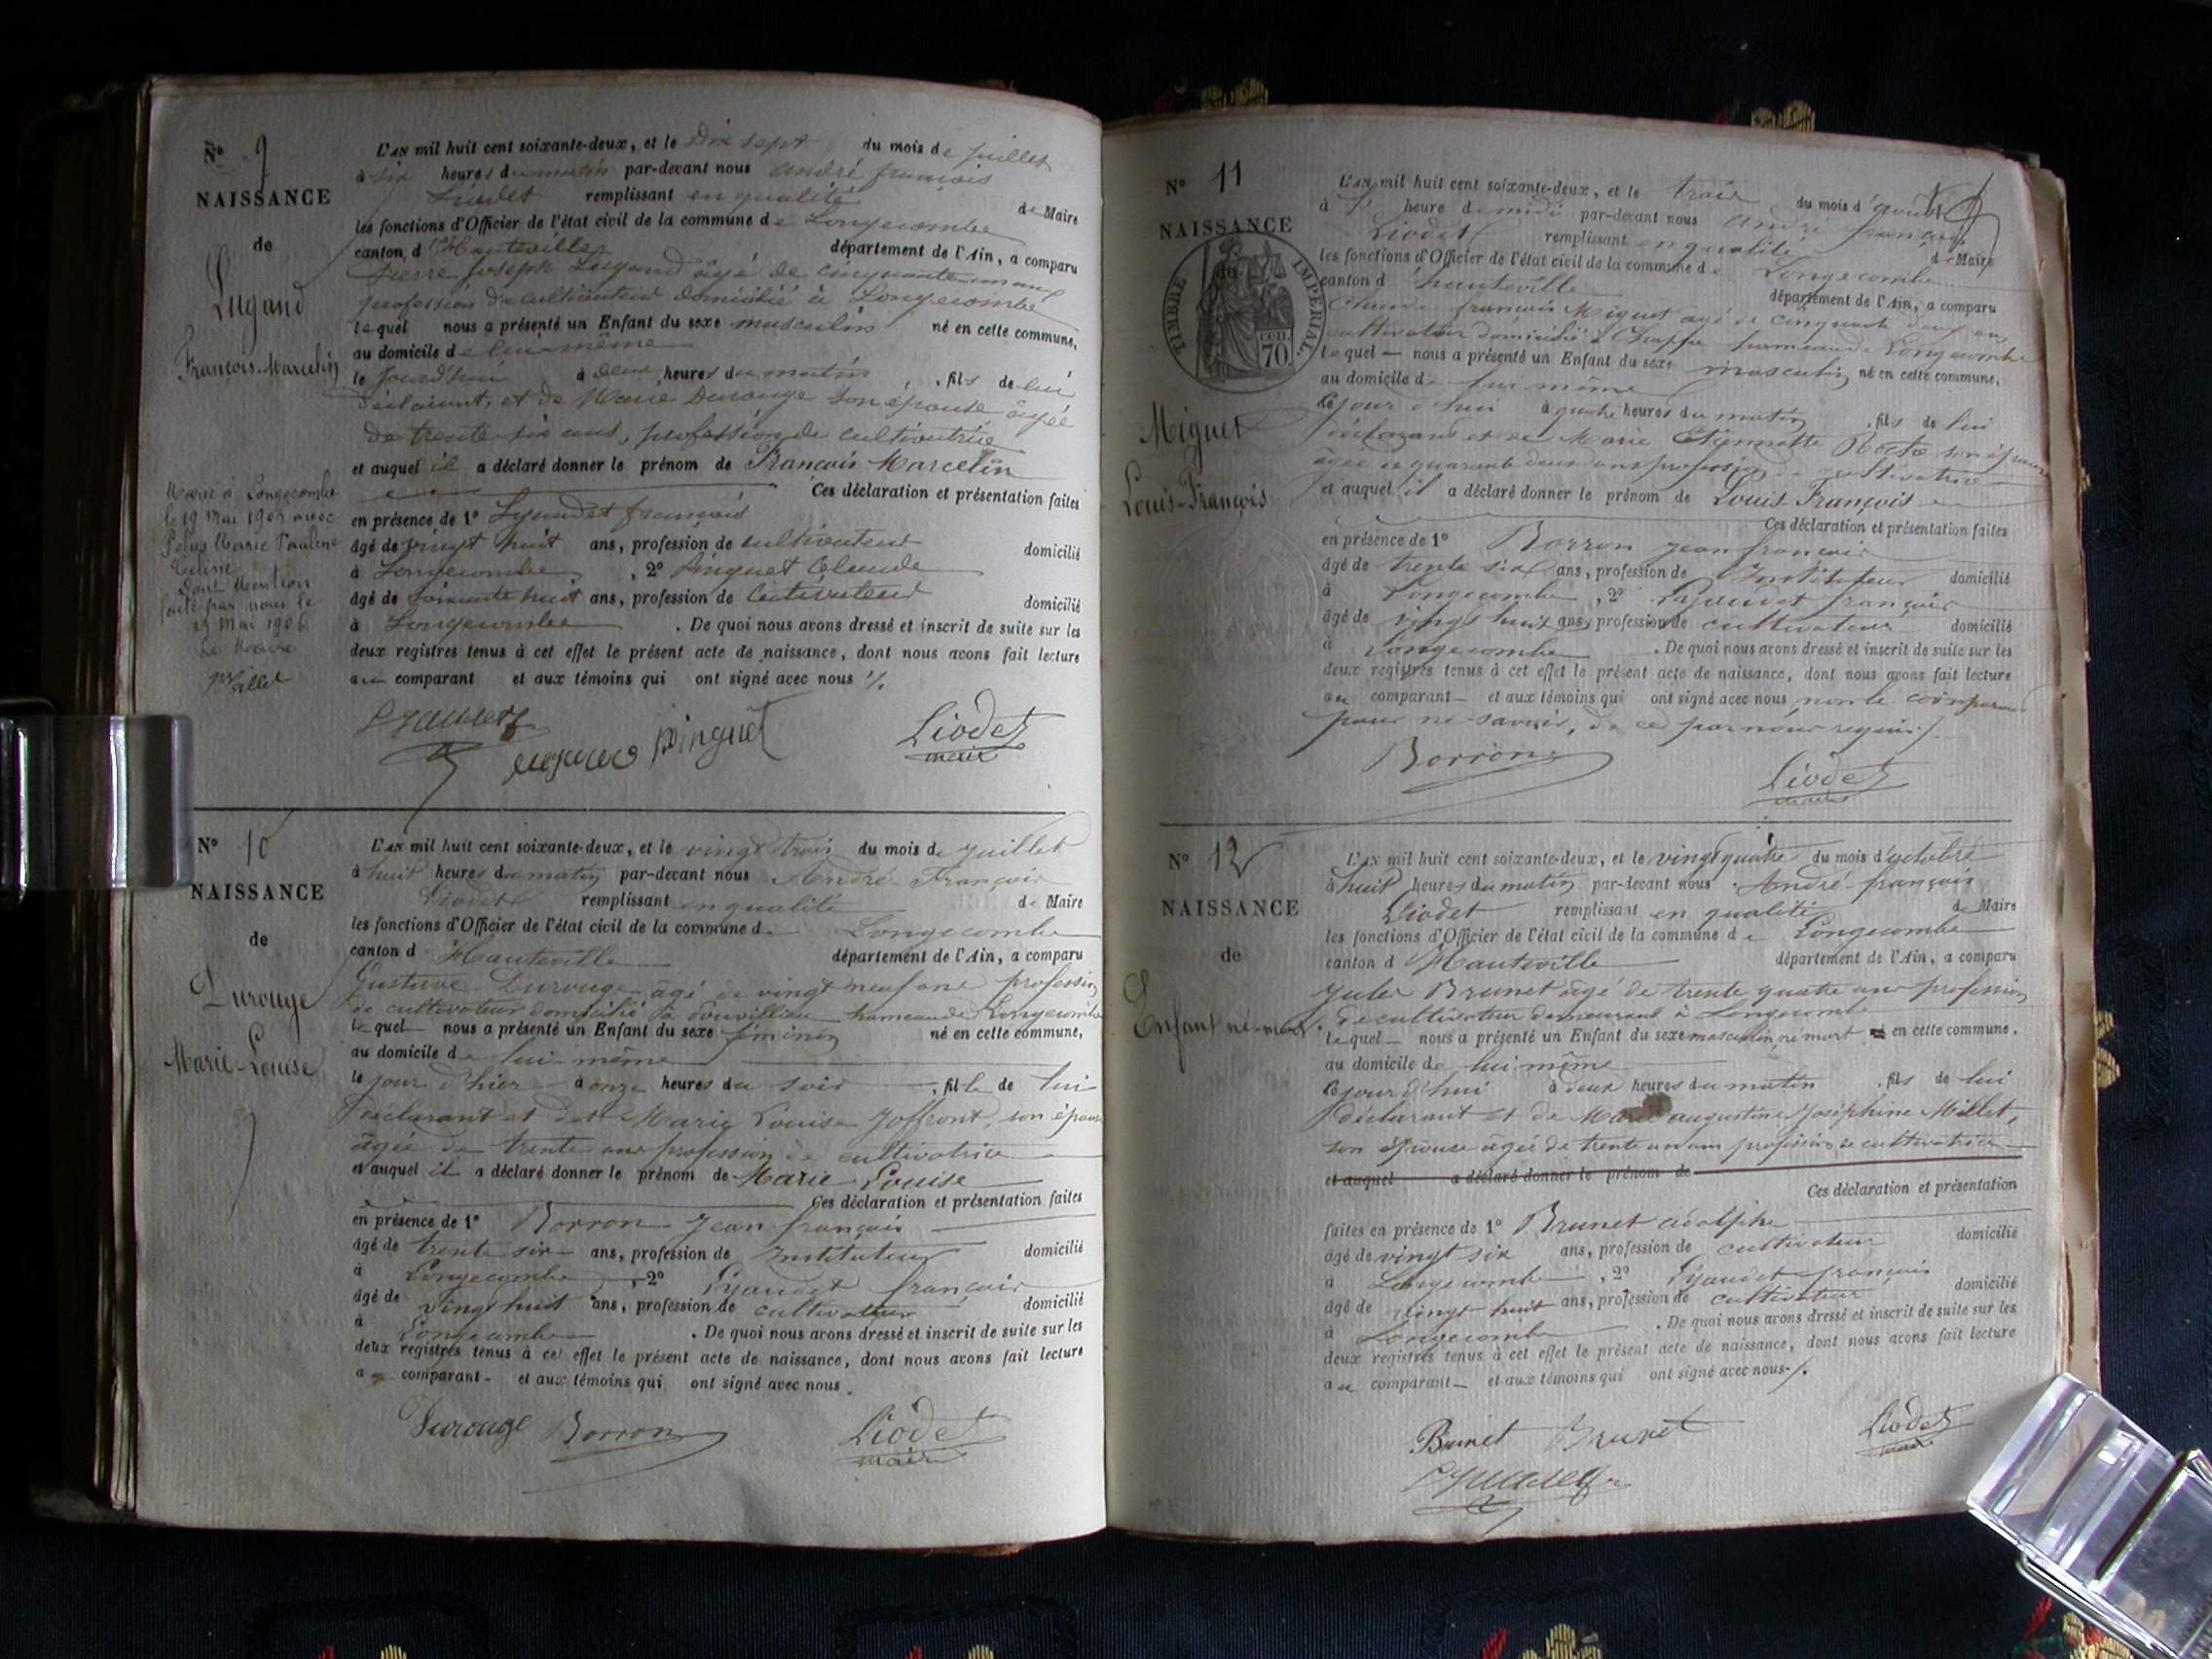 N° 9
NAISSANCE
de
Lugand
François-Marcelin
L'AN mil huit cent soixante-deux, et le Dix sept du mois de juillet
à six heures du matin par-devant nous André françois
Liodet remplissant en qualité de Maire
les fonctions d'Officier de l'état civil de la commune de Longecombe
canton d'Hauteville département de l'Ain, a comparu
Pierre Joseph Lugand âgé de cinquante un ans
profession de cultivateur domicilié à Longecombe
lequel nous a présenté un Enfant du sexe masculin né en cette commune,
au domicile de lui-même
le jourd'hui à deux heures du matin, fils de lui
déclarant, et de Marie Durouge son épouse âgée
de trente six ans, profession de cultivatrice
et auquel il a déclaré donner le prénom de François Marcelin
Ces déclaration et présentation faites
en présence de 1° Lyaudet françois
âgé de vingt huit ans, profession de cultivateur domicilié
à Longecombe, 2° Pinguet Claude
âgé de soixante huit ans, profession de Cultivateur domicilié
à Longecombe. De quoi nous avons dressé et inscrit de suite sur les
deux registres tenus à cet effet le présent acte de naissance, dont nous avons fait lecture
au comparant et aux témoins qui ont signé avec nous
Marié à Longecombe
le 19 Mai 1906 avec
Marie Pauline
Dont Mention
faite par nous le
Mai 1906
Le Maire
Lyaudet pinguet Liodet
maire
N° 10
NAISSANCE
de
Durouge
Marie-Louise
L'AN mil huit cent soixante-deux, et le vingt trois du mois de juillet
à huit heures du matin par-devant nous André François
Liodet remplissant en qualité de Maire
les fonctions d'Officier de l'état civil de la commune de Longecombe
canton d'Hauteville département de l'Ain, a comparu
Gustave Durouge âgé de vingt neuf ans profession
de cultivateur domicilié à hameau de Longecombe
lequel nous a présenté un Enfant du sexe féminin né en cette commune,
au domicile de lui-même
le jour d'hier à onze heures du soir, fille de lui
déclarant et de Marie Louise Joffront, son épouse
âgée de trente ans profession de cultivatrice
et auquel il a déclaré donner le prénom de Marie Louise
Ces déclaration et présentation faites
en présence de 1° Borron Jean françois
âgé de trente six ans, profession de Instituteur domicilié
à Longecombe, 2° Lyaudet françois
âgé de vingt huit ans, profession de cultivateur domicilié
à Longecombe. De quoi nous avons dressé et inscrit de suite sur les
deux registres tenus à cet effet le présent acte de naissance, dont nous avons fait lecture
au comparant et aux témoins qui ont signé avec nous.
Durouge Borron Liodet
maire
N° 11
NAISSANCE
TIMBRE IMPÉRIAL
CEN. 70.
Miguet
Louis-François
L'AN mil huit cent soixante-deux, et le trois du mois d'août
à heure de midi par-devant nous André françois
Liodet remplissant en qualité de Maire
les fonctions d'Officier de l'état civil de la commune de Longecombe
canton d'hauteville département de l'Ain, a comparu
Claude françois Miguet âgé de cinquante deux ans
cultivateur domicilié à hameau de Longecombe
lequel nous a présenté un Enfant du sexe masculin né en cette commune,
au domicile de lui-même
le jour d'hui à quatre heures du matin, fils de lui
déclarant et de Marie Etiennette son épouse
âgée de quarante deux ans profession de cultivatrice
et auquel il a déclaré donner le prénom de Louis-François
Ces déclaration et présentation faites
en présence de 1° Borron Jean françois
âgé de trente six ans, profession de Instituteur domicilié
à Longecombe, 2° Lyaudet françois
âgé de vingt huit ans, profession de cultivateur domicilié
à Longecombe. De quoi nous avons dressé et inscrit de suite sur les
deux registres tenus à cet effet le présent acte de naissance, dont nous avons fait lecture
au comparant et aux témoins qui ont signé avec nous non le comparant
pour ne savoir, de ce par nous requis
Borron Liodet
maire
N° 12
NAISSANCE
de
Enfant né-mort.
L'AN mil huit cent soixante-deux, et le vingt quatre du mois d'octobre
à huit heures du matin par-devant nous André-françois
Liodet remplissant en qualité de Maire
les fonctions d'Officier de l'état civil de la commune de Longecombe
canton d'Hauteville département de l'Ain, a comparu
Jules Brunet âgé de trente quatre ans profession
de cultivateur demeurant à Longecombe
lequel nous a présenté un Enfant du sexe masculin, né mort en cette commune,
au domicile de lui même
le jourd'hui à deux heures du matin, fils de lui
déclarant et de Marie augustine Joséphine Millet,
son épouse âgée de trente un ans profession de cultivatrice
et auquel a déclaré donner le prénom de
Ces déclaration et présentation
faites en présence de 1° Brunet adolphe
âgé de vingt six ans, profession de cultivateur domicilié
à Longecombe, 2° Lyaudet françois
âgé de vingt huit ans, profession de cultivateur domicilié
à Longecombe. De quoi nous avons dressé et inscrit de suite sur les
deux registres tenus à cet effet le présent acte de naissance, dont nous avons fait lecture
au comparant et aux témoins qui ont signé avec nous.
Brunet Brunet Liodet
maire
Lyaudet